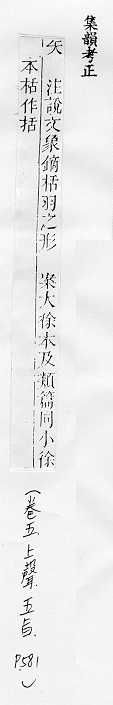 集韻考正
矢　注說文象鏑栝羽之形　案大徐本及類篇同小徐
本栝作括
（卷五.上聲.五旨.P.581）